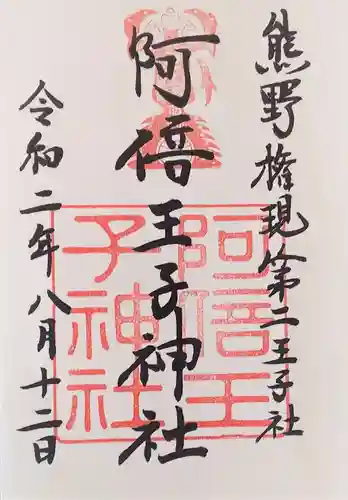 熊野権現第二王子社
阿倍王子神社
令和二年八月十二日
阿倍王
子神社